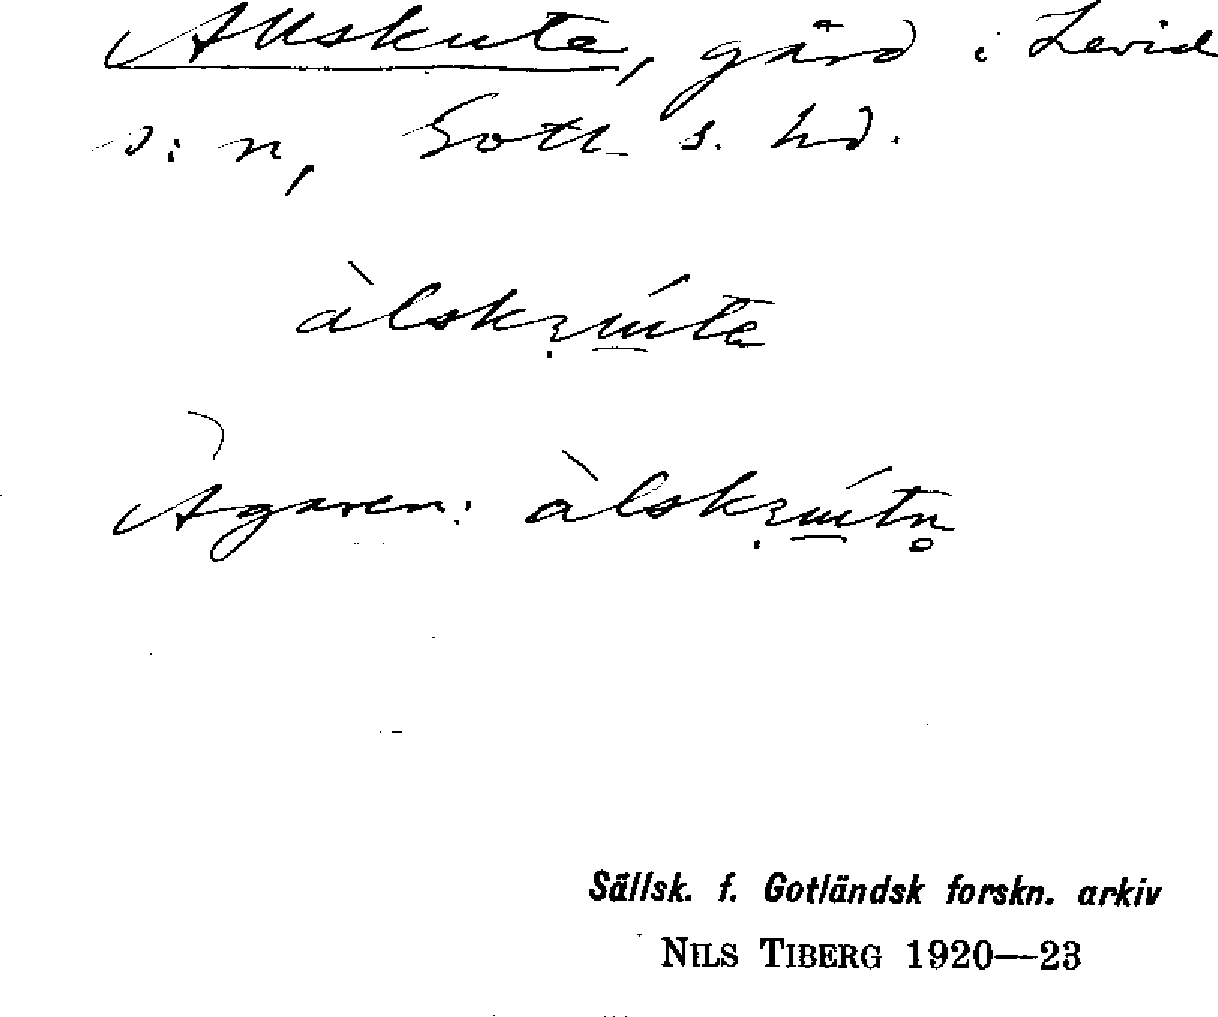 Allskute, gård i Levide
s:n, Gotl. s. hd.
àlskúte
Ägaren: àlskútn̥
Sällsk. f. Gotländsk forskn. arkiv
NILS TIBERG 1920—23